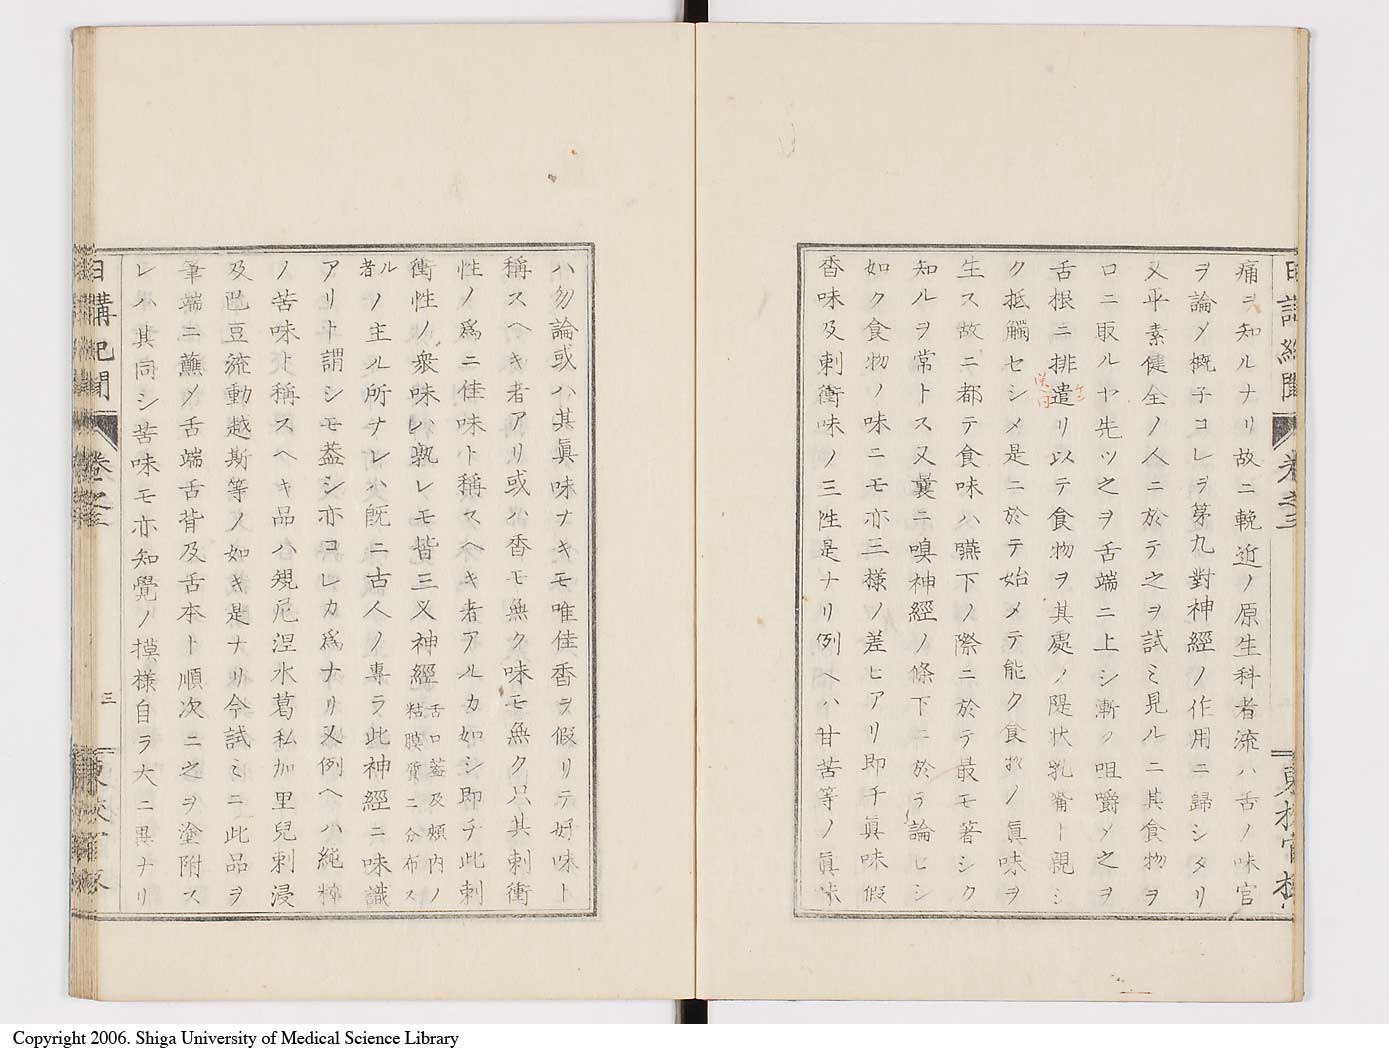 痛ヲ知ルナリ故ニ輓近ノ原生科者流ハ舌ノ味官
ヲ論メ概子コレヲ第九對神經ノ作用ニ歸シタリ
又平素健全ノ人ニ於テ之ヲ試ミ見ルニ其食物ヲ
口ニ取ルヤ先ツ之ヲ舌端ニ上シ漸ク咀嚼メ之ヲ
舌根ニ排遣リ以テ食物ヲ其處ノ隄狀乳觜ト親シ
ク抵觸セシメ是ニ於テ始メテ能ク食物ノ眞味ヲ
生ス故ニ都テ食味ハ嚥下ノ際ニ於テ最モ著シク
知ルヲ常トス又曩ニ嗅神經ノ條下ニ於テ論セシ
如ク食物ノ味ニモ亦三様ノ差ヒアリ即チ眞味假
香味及刺衝味ノ三性是ナリ例ヘハ甘苦等ノ眞味
ハ勿論或ハ其眞味ナキモ唯佳香ヲ假リテ好味ト
稱スヘキ者アリ或ハ香モ無ク味モ無ク只其刺衝
性ノ爲ニ佳味ト稱スヘキ者アルカ如シ即チ此刺
衝性ノ衆味ハ孰レモ皆三叉神經舌口蓋及頰内ノ粘膜質ニ分布ス
ル者ノ主ル所ナレハ既ニ古人ノ專ラ此神經ニ味識
アリト謂シモ蓋シ亦コレカ爲ナリ又例ヘハ純粹
ノ苦味ト稱スヘキ品ハ規尼涅水葛私加里兒刺浸
及巴豆流動越斯等ノ如キ是ナリ今試ミニ此品ヲ
筆端ニ蘸メ舌端舌背及舌本ト順次ニ之ヲ塗附ス
レハ其同シ苦味モ亦知覺ノ摸樣自ラ大ニ異ナリ
日講紀聞
卷之三
三
Copyright 2006. Shiga University of Medical Science Library